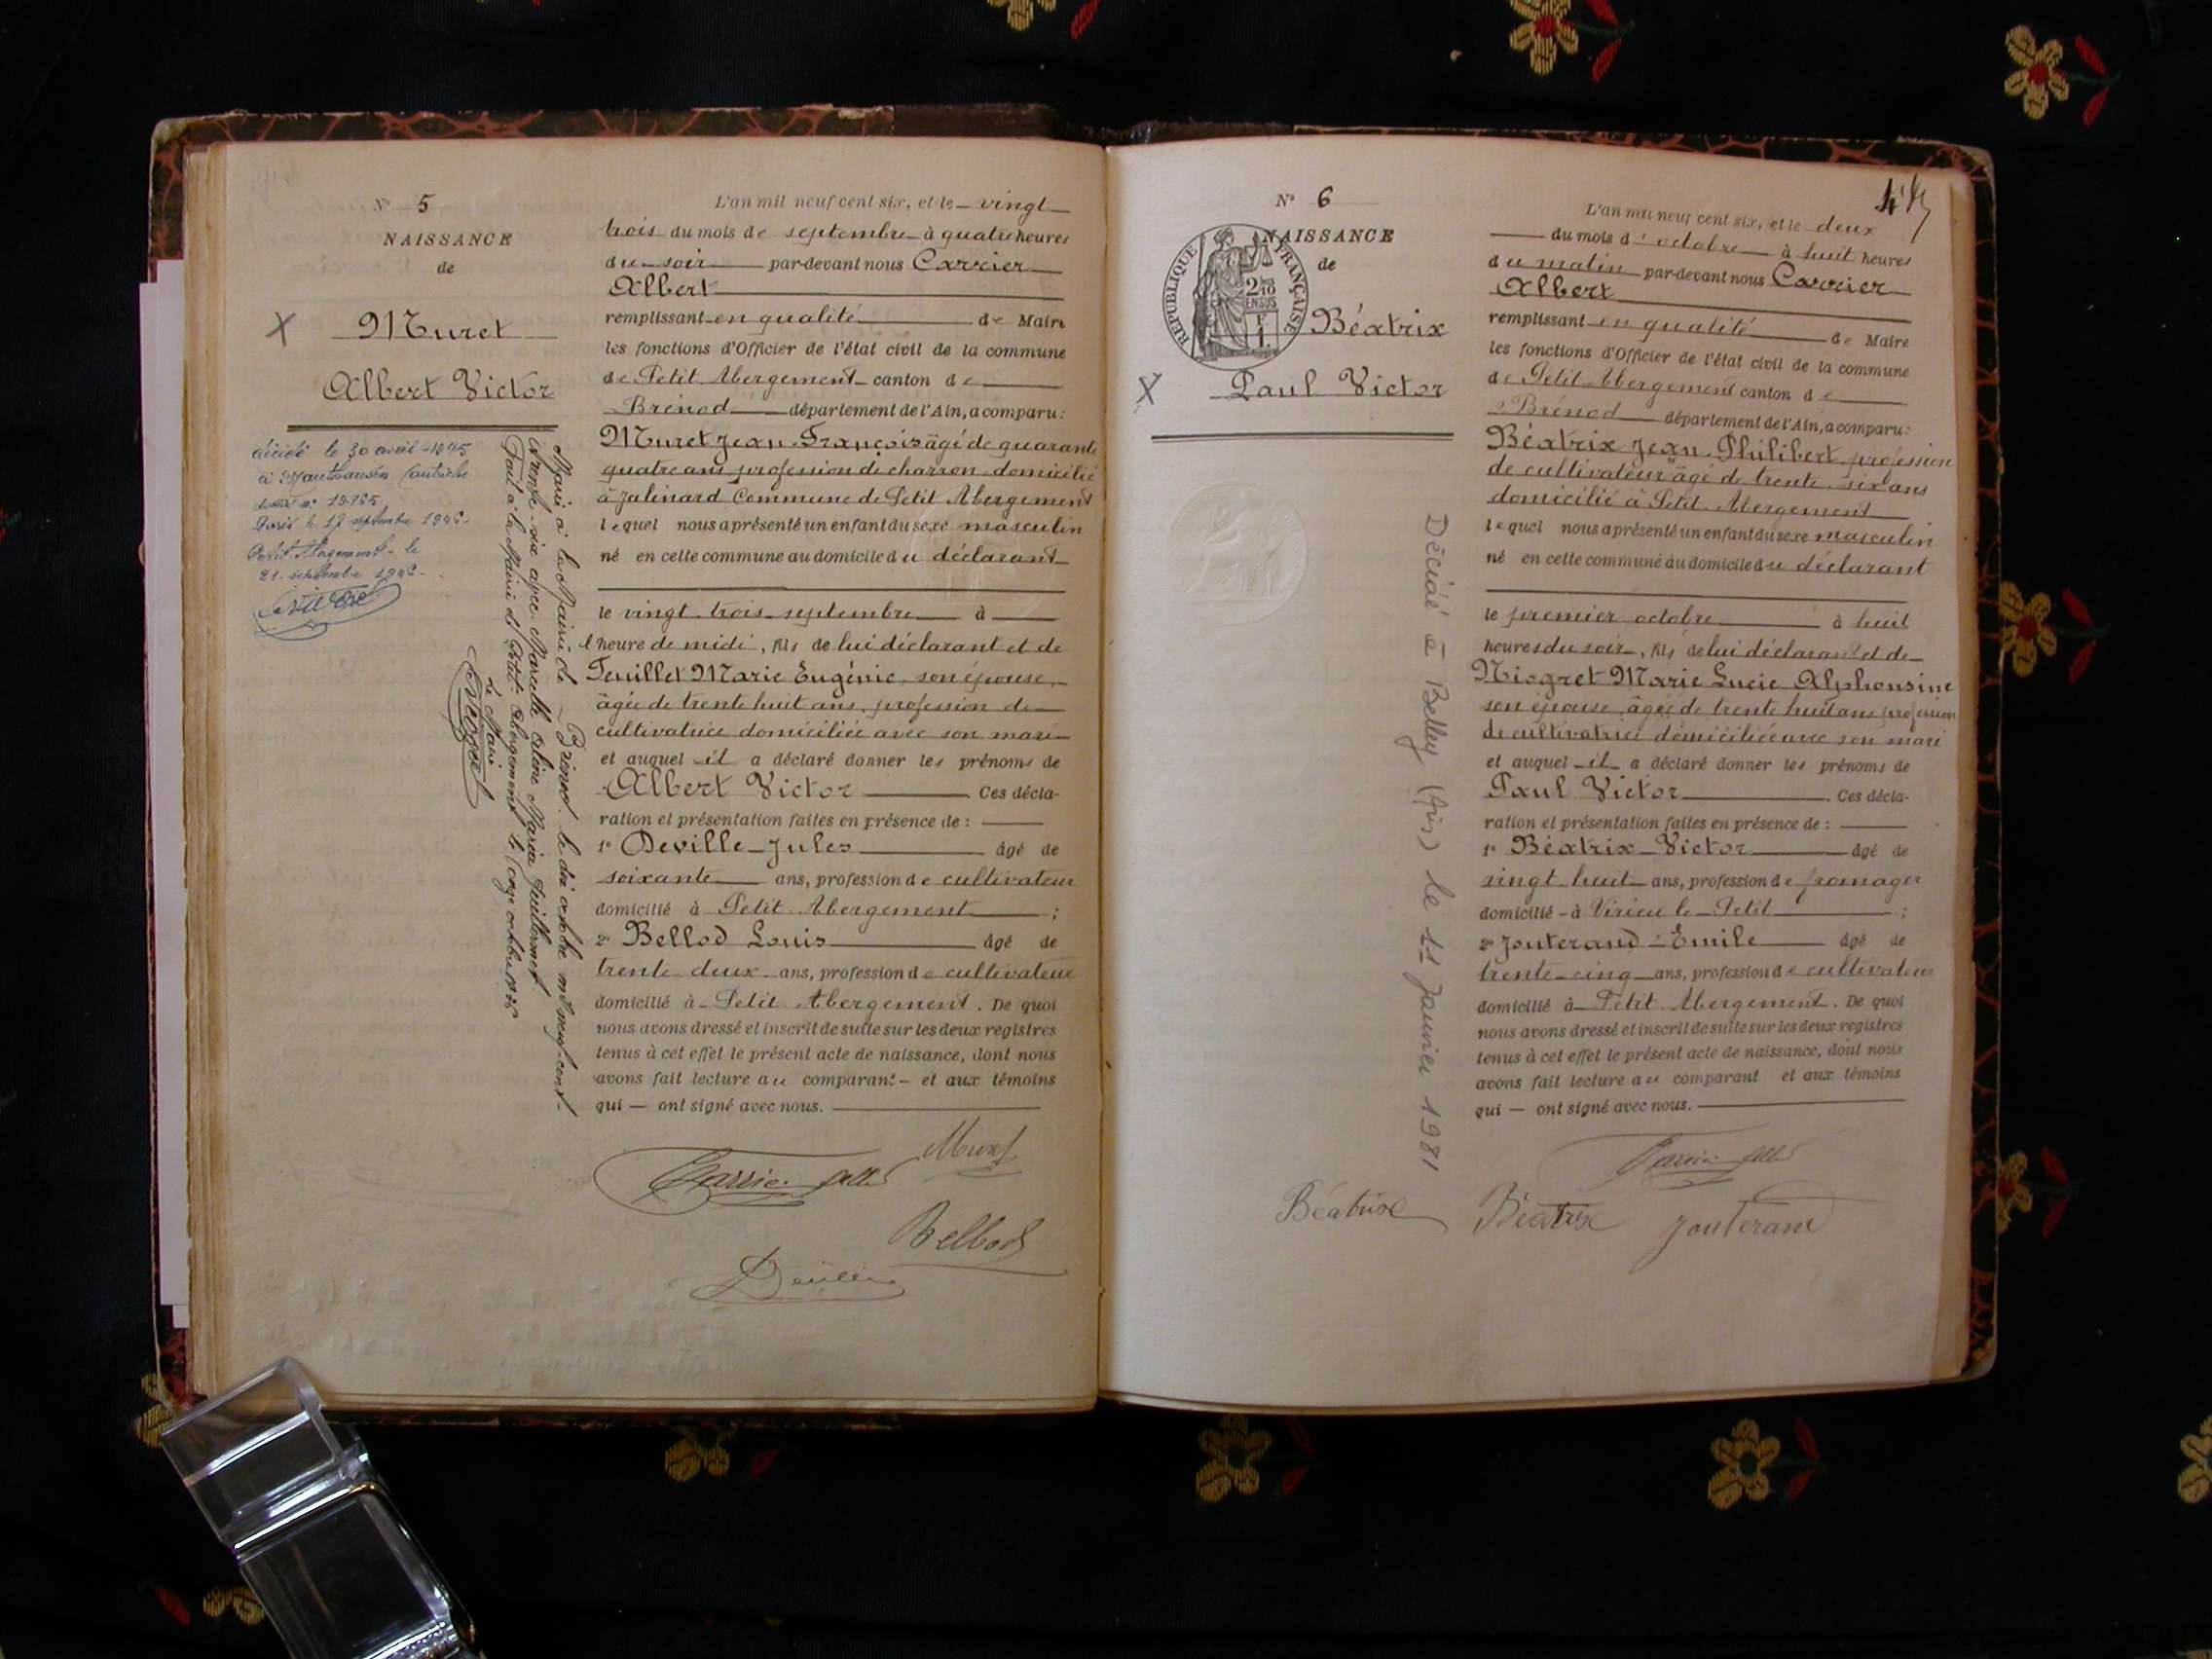 N° 5
NAISSANCE
de
Muret
Albert Victor
décédé le 30 avril 1945
à Mauthausen (autriche
Paris le 17 septembre 1946
Petit Abergement le
21 septembre 1946
Marié à la Mairie de Brénod le dix octobre mil neuf cent
trente six avec Marcelle Céline Maria Guillermet
Fait à la Mairie de Petit Abergement le onze octobre 1936
Le Maire
L'an mil neuf cent six, et le vingt
trois du mois de septembre à quatre heures
du soir par-devant nous Carrier
Albert
remplissant en qualité de Maire
les fonctions d'Officier de l'état civil de la commune
de Petit Abergement canton de
Brénod département de l'Ain, a comparu:
Muret Jean François âgé de quarante
quatre ans, profession de charron domicilié
à Jalinard Commune de Petit Abergement
lequel nous a présenté un enfant du sexe masculin
né en cette commune au domicile du déclarant
le vingt trois septembre à
l'heure de midi, fils de lui déclarant et de
Feuillet Marie Eugénie, son épouse,
âgée de trente huit ans, profession de
cultivatrice domiciliée avec son mari
et auquel il a déclaré donner les prénoms de
Albert Victor Ces décla-
ration et présentation faites en présence de :
1° Deville Jules âgé de
soixante ans, profession de cultivateur
domicilié à Petit Abergement ;
2° Bellod Louis âgé de
trente deux ans, profession de cultivateur
domicilié à Petit Abergement. De quoi
nous avons dressé et inscrit de suite sur les deux registres
tenus à cet effet le présent acte de naissance, dont nous
avons fait lecture au comparant et aux témoins
qui — ont signé avec nous.
Muret
Carrier Albt
Bellod
Deville
N° 6
NAISSANCE
de
RÉPUBLIQUE FRANÇAISE
2/10
EN SUS
Béatrix
Paul Victor
Décédé à Belley (Ain) le 11 Janvier 1981
L'an mil neuf cent six, et le deux
du mois d'octobre à huit heures
du matin par-devant nous Carrier
Albert
remplissant en qualité de Maire
les fonctions d'Officier de l'état civil de la commune
de Petit Abergement canton de
Brénod département de l'Ain, a comparu:
Béatrix Jean Philibert, profession
de cultivateur âgé de trente six ans
domicilié à Petit Abergement
lequel nous a présenté un enfant du sexe masculin
né en cette commune au domicile du déclarant
le premier octobre à huit
heures du soir, fils de lui déclarant et de
Niogret Marie Lucie Alphonsine
son épouse, âgée de trente huit ans profession
de cultivatrice domiciliée avec son mari
et auquel il a déclaré donner les prénoms de
Paul Victor. Ces décla-
ration et présentation faites en présence de :
1° Béatrix Victor âgé de
vingt huit ans, profession de fromager
domicilié à Virieu le Petit ;
2° Jouterand Emile âgé de
trente cinq ans, profession de cultivateur
domicilié à Petit Abergement. De quoi
nous avons dressé et inscrit de suite sur les deux registres
tenus à cet effet le présent acte de naissance, dont nous
avons fait lecture au comparant et aux témoins
qui — ont signé avec nous.
Carrier Albt
Béatrix Béatrix Jouterand